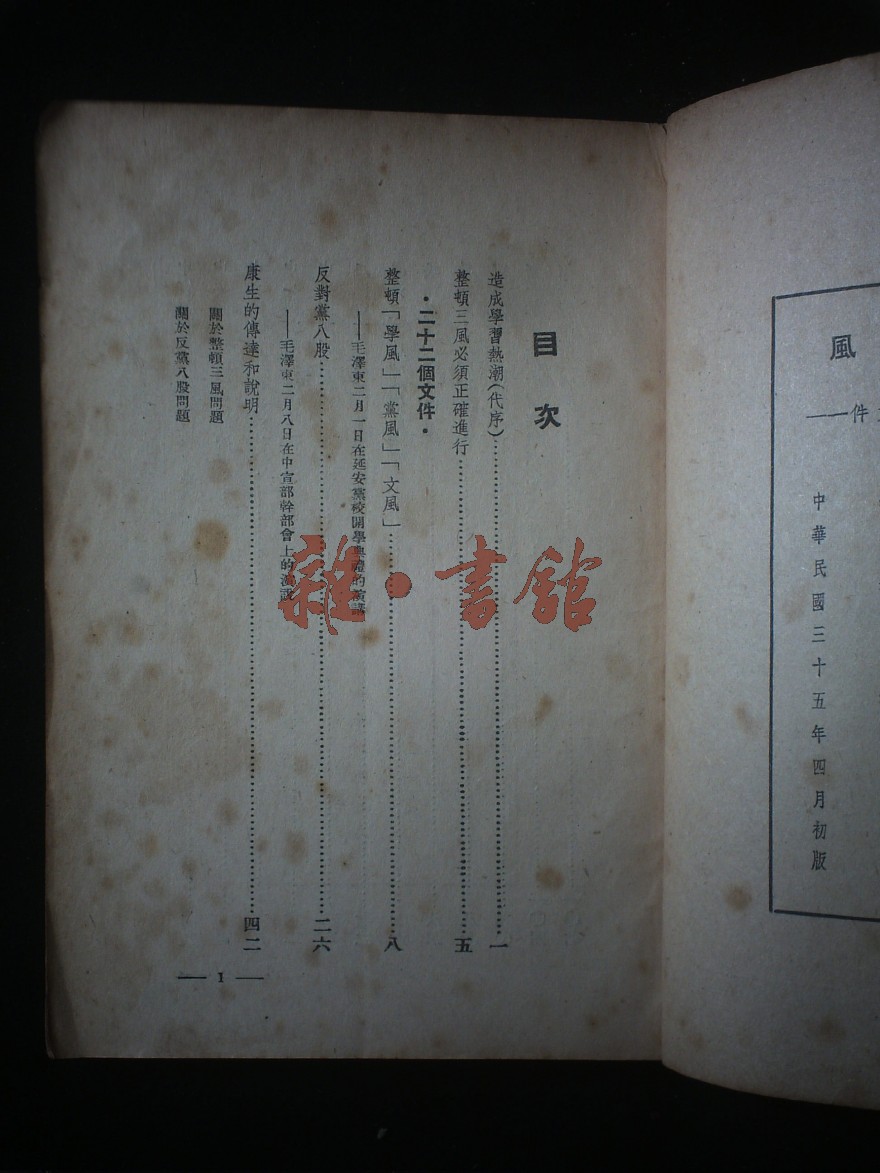 風
件——
中華民國三十五年四月初版
目次
造成學習熱潮（代序）……一
整頓三風必須正確進行……五
·二十二個文件·
整頓「學風」「黨風」「文風」……八
——毛澤東二月一日在延安黨校開學典禮的演講
反對黨八股……二六
——毛澤東二月八日在中宣部幹部會上的演說
康生的傳達和說明……四二
關於整頓三風問題
關於反黨八股問題
— 1 —
雜·書館